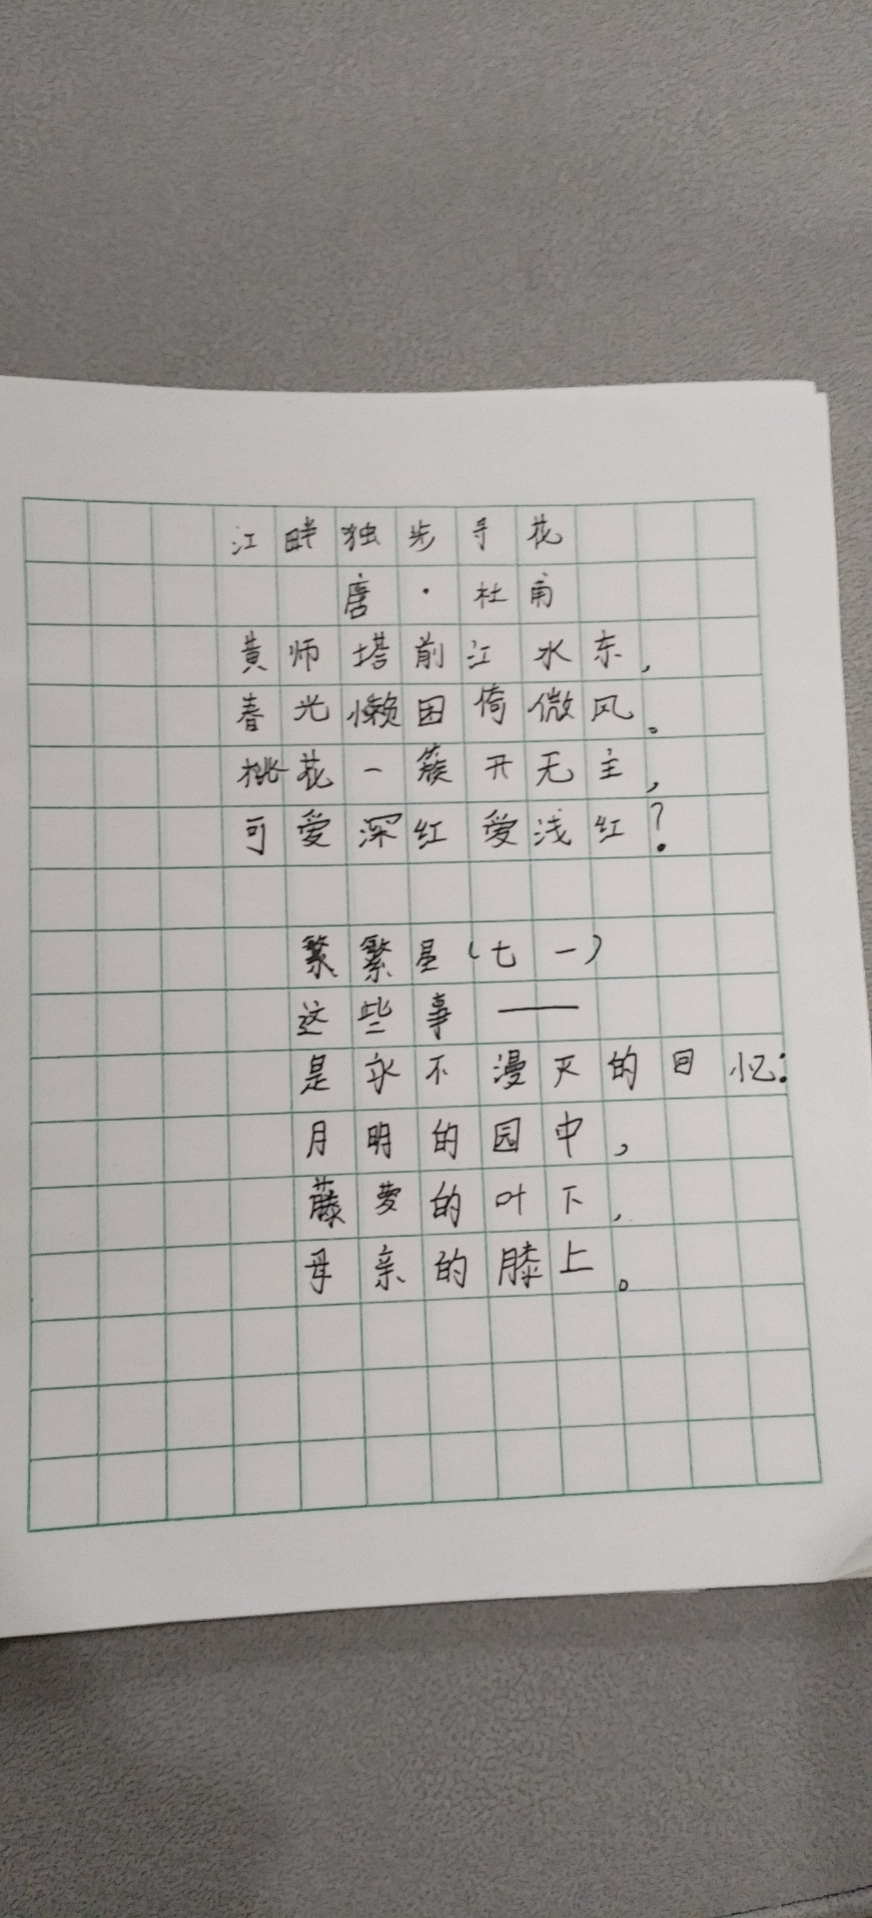 江畔独步寻花
唐·杜甫
黄师塔前江水东，
春光懒困倚微风。
桃花一簇开无主，
可爱深红爱浅红？
繁繁星（七一）
这些事——
是永不漫灭的回忆：
月明的园中，
藤萝的叶下，
母亲的膝上。